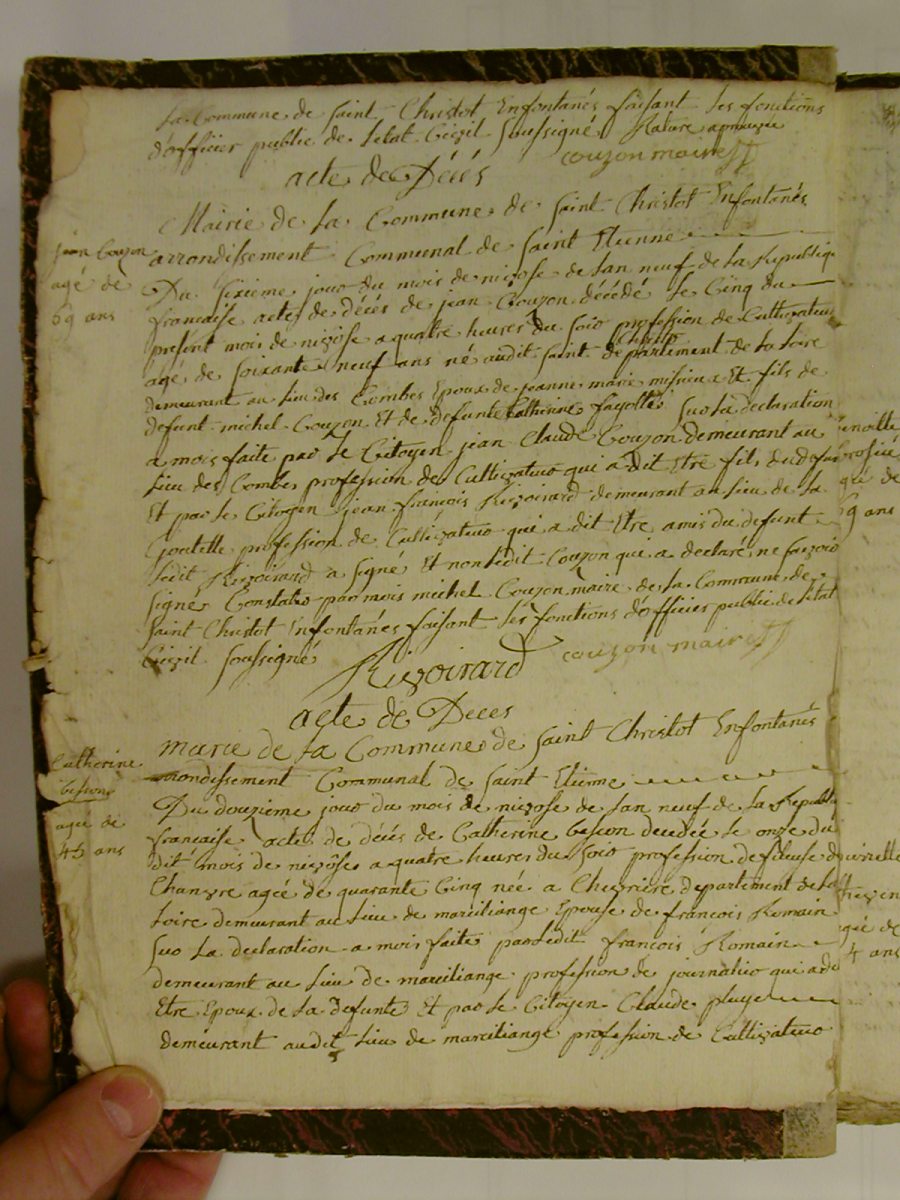 La Commune de Saint Christot Enfontanés faisant les fonctions
d'officier public de letat Civil Soussigné Rature aprouvée
couzon maire
acte de Décés
Mairie de la Commune de Saint Christot Enfontanés
arrondissement Communal de Saint Etienne
jean Couzon
agé de
69 ans
Du Sixieme jour du mois de nivose de lan neuf de la Republiq
francaise acte de décés de jean Couzon décédé le Cinq du
present mois de nivôse a quatre heures du Soir profession de Cultivateur
agé de Soixante neuf ans né audit Saint Christot departement de la Loire
demeurant au lieu des Combes Epoux de jeanne marie et fils de
defunt michel Couzon Et de defunte Catherine fayolle Sur la declaration
a mois faite par le Citoyen jean Claude Couzon demeurant au
lieu des Combes profession de Cultivateur qui a dit Etre fils du defunt
Et par le Citoyen jean francois Rivoirard demeurant au lieu de la
profession de Cultivateur qui a dit Etre amis du defunt
ledit Rivoirard a signé Et non ledit Couzon qui a declaré ne Savoir
signé Constaté par mois michel Couzon maire de la Commune de
Saint Christot Enfontanés faisant les fonctions dofficier public de letat
Civil Soussigné
Rivoirard couzon maire
acte de Deces
marie de la Commune de Saint Christot Enfontanés
arrondissement Communal de Saint Etienne
Catherine
besson
agée de
45 ans
Du douzieme jour du mois de nivose de lan neuf de la Republi
francaise acte de décés de Catherine besson decedée le onze du
dit mois de nivôse a quatre heures du Soir profession de fileuse de
Chanvre agée de quarante Cinq née a Chevriere departement de la
Loire demeurant au lieu de marciliange Epouse de francois Romain
Sur la declaration a mois faite par ledit francois Romain
demeurant au lieu de marciliange profession de journalier qui a dit
Etre Epoux de la defunte Et par le Citoyen Claude
demeurant audit lieu de marciliange profession de Cultivateur
agé de
69 ans
agée de
4 ans